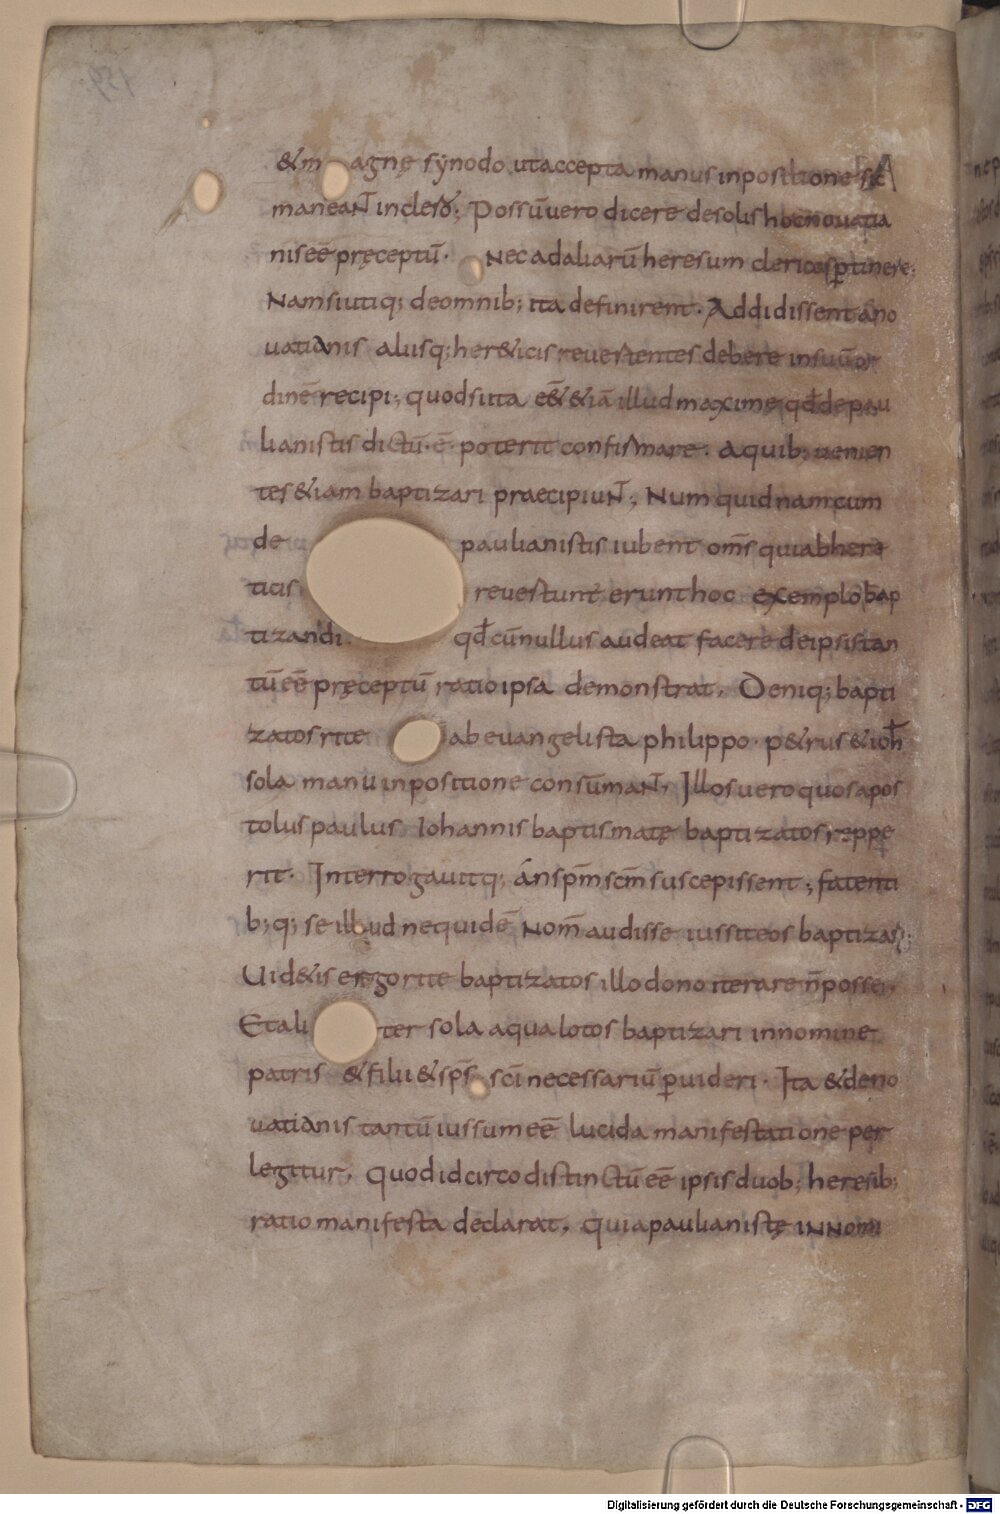 &m agnę sẏnodo ut accepta manus inpositione sic
maneaNT in clero; Possū vero dicere de solis hoc novatia
nis eē pręceptū. Nec ad aliarū heresum clericos ptinere;
Nam si utiq; de omnib; ita definirent. Addidissent a no
vatianis aliisq; her&icis revertentes debere in suū or
dinē recipi; quod si ita eēt &iā illud maxime qd de pau
lianistis dictū ē poterit confirmare. A quib; venien
tes &iam baptizari praecipiuNT; Num quidnam cum
de paulianistis iubent om̄s quia b here
ticis revertunt erunt hoc exemplo bap
tizandi. qd cū nullus audeat facere de ipsis tan
tū eē pręceptū ratio ipsa demonstrat. Deniq; bapti
zatos rite ab evangelista philippo. p&rus & ioh
sola manu inpositione consūmaNT. Illos vero quos apos
tolus paulus Iohannis baptismate baptizatos reppe
rit. Interrogavitq; án sp̄m sc̄m suscepissent; fatenti
b;q; se illud ne quidē Nom̄ audisse iussit eos baptizari;
Uid&is ergo rite baptizatos illo dono iterare n̄ posse.
Et ali ter sola aqua lotos baptizari in nomine
patris & filii & sp̄s sci necessariū pvideri. Ita & de no
vatianis tantū iussum eē lucida manifestatione per
legitur. Quod idcirco distinctū eē ipsis duob; heresib;
ratio manifesta declarat. Quia paulianistę iNNomi
Digitalisierung gefördert durch die Deutsche Forschungsgemeinschaft - DFG